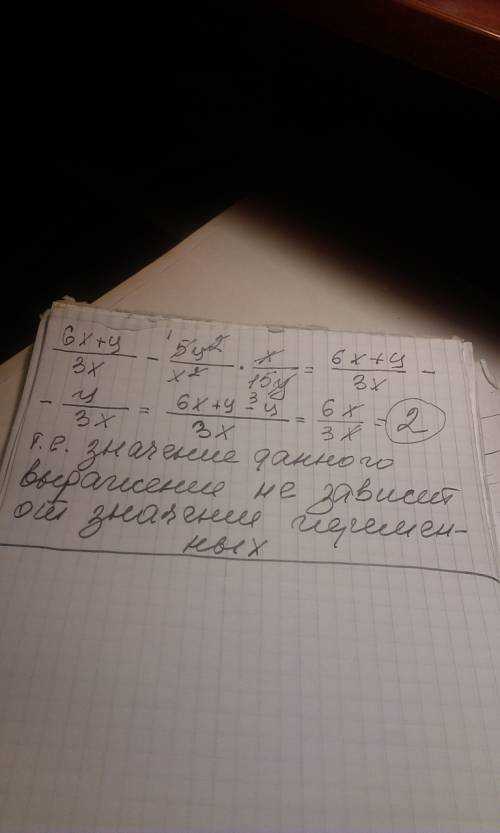 (6x+y)/(3x) - (5y²)/(x²) · x/(15y) = (6x+y)/(3x) -
- y/(3x) = (6x+y-y)/(3x) = (6x)/(3x) = 2
т.е. значение данного
выражение не зависит
от значения перемен-
ных